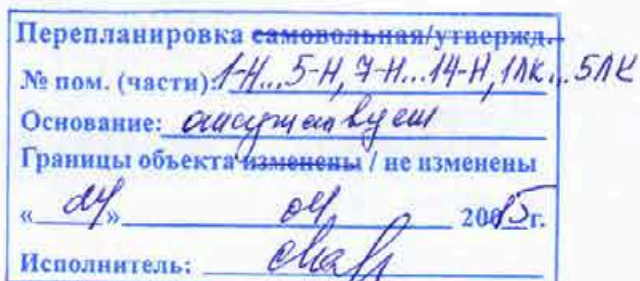 Перепланировка самовольная/утвержд.
№ пом. (части): 1-Н...5-Н, 7-Н...14-Н, 1ЛК...5ЛК
Основание: отсутствует
Границы объекта изменены / не изменены
« 04 » 04 2015г.
Исполнитель: